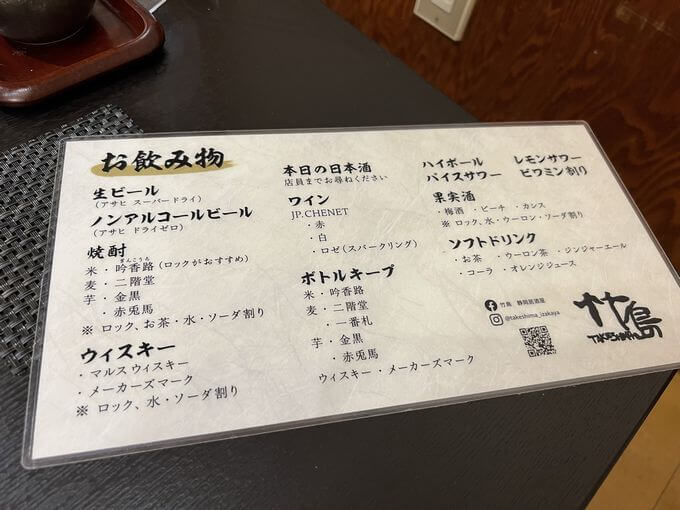 お飲み物
生ビール
(アサヒ スーパードライ)
ノンアルコールビール
(アサヒ ドライゼロ)
焼酎
ぎんこうろ
米・吟香路 (ロックがおすすめ)
麦・二階堂
芋・金黒
・赤兎馬
※ ロック、お茶・水・ソーダ割り
ウィスキー
・マルスウィスキー
・メーカーズマーク
※ ロック、水・ソーダ割り
本日の日本酒
店員までお尋ねください
ワイン
JP.CHENET
・赤
・白
・ロゼ(スパークリング)
ボトルキープ
米・吟香路
麦・二階堂
・一番札
芋・金黒
・赤兎馬
ウィスキー・メーカーズマーク
ハイボール レモンサワー
バイスサワー ビワミン割り
果実酒
・梅酒 ・ピーチ ・カシス
※ ロック、水・ウーロン・ソーダ割り
ソフトドリンク
・お茶 ・ウーロン茶 ・ジンジャーエール
・コーラ ・オレンジジュース
竹島 静岡居酒屋
@takeshima_izakaya
竹島
TAKESHIMA